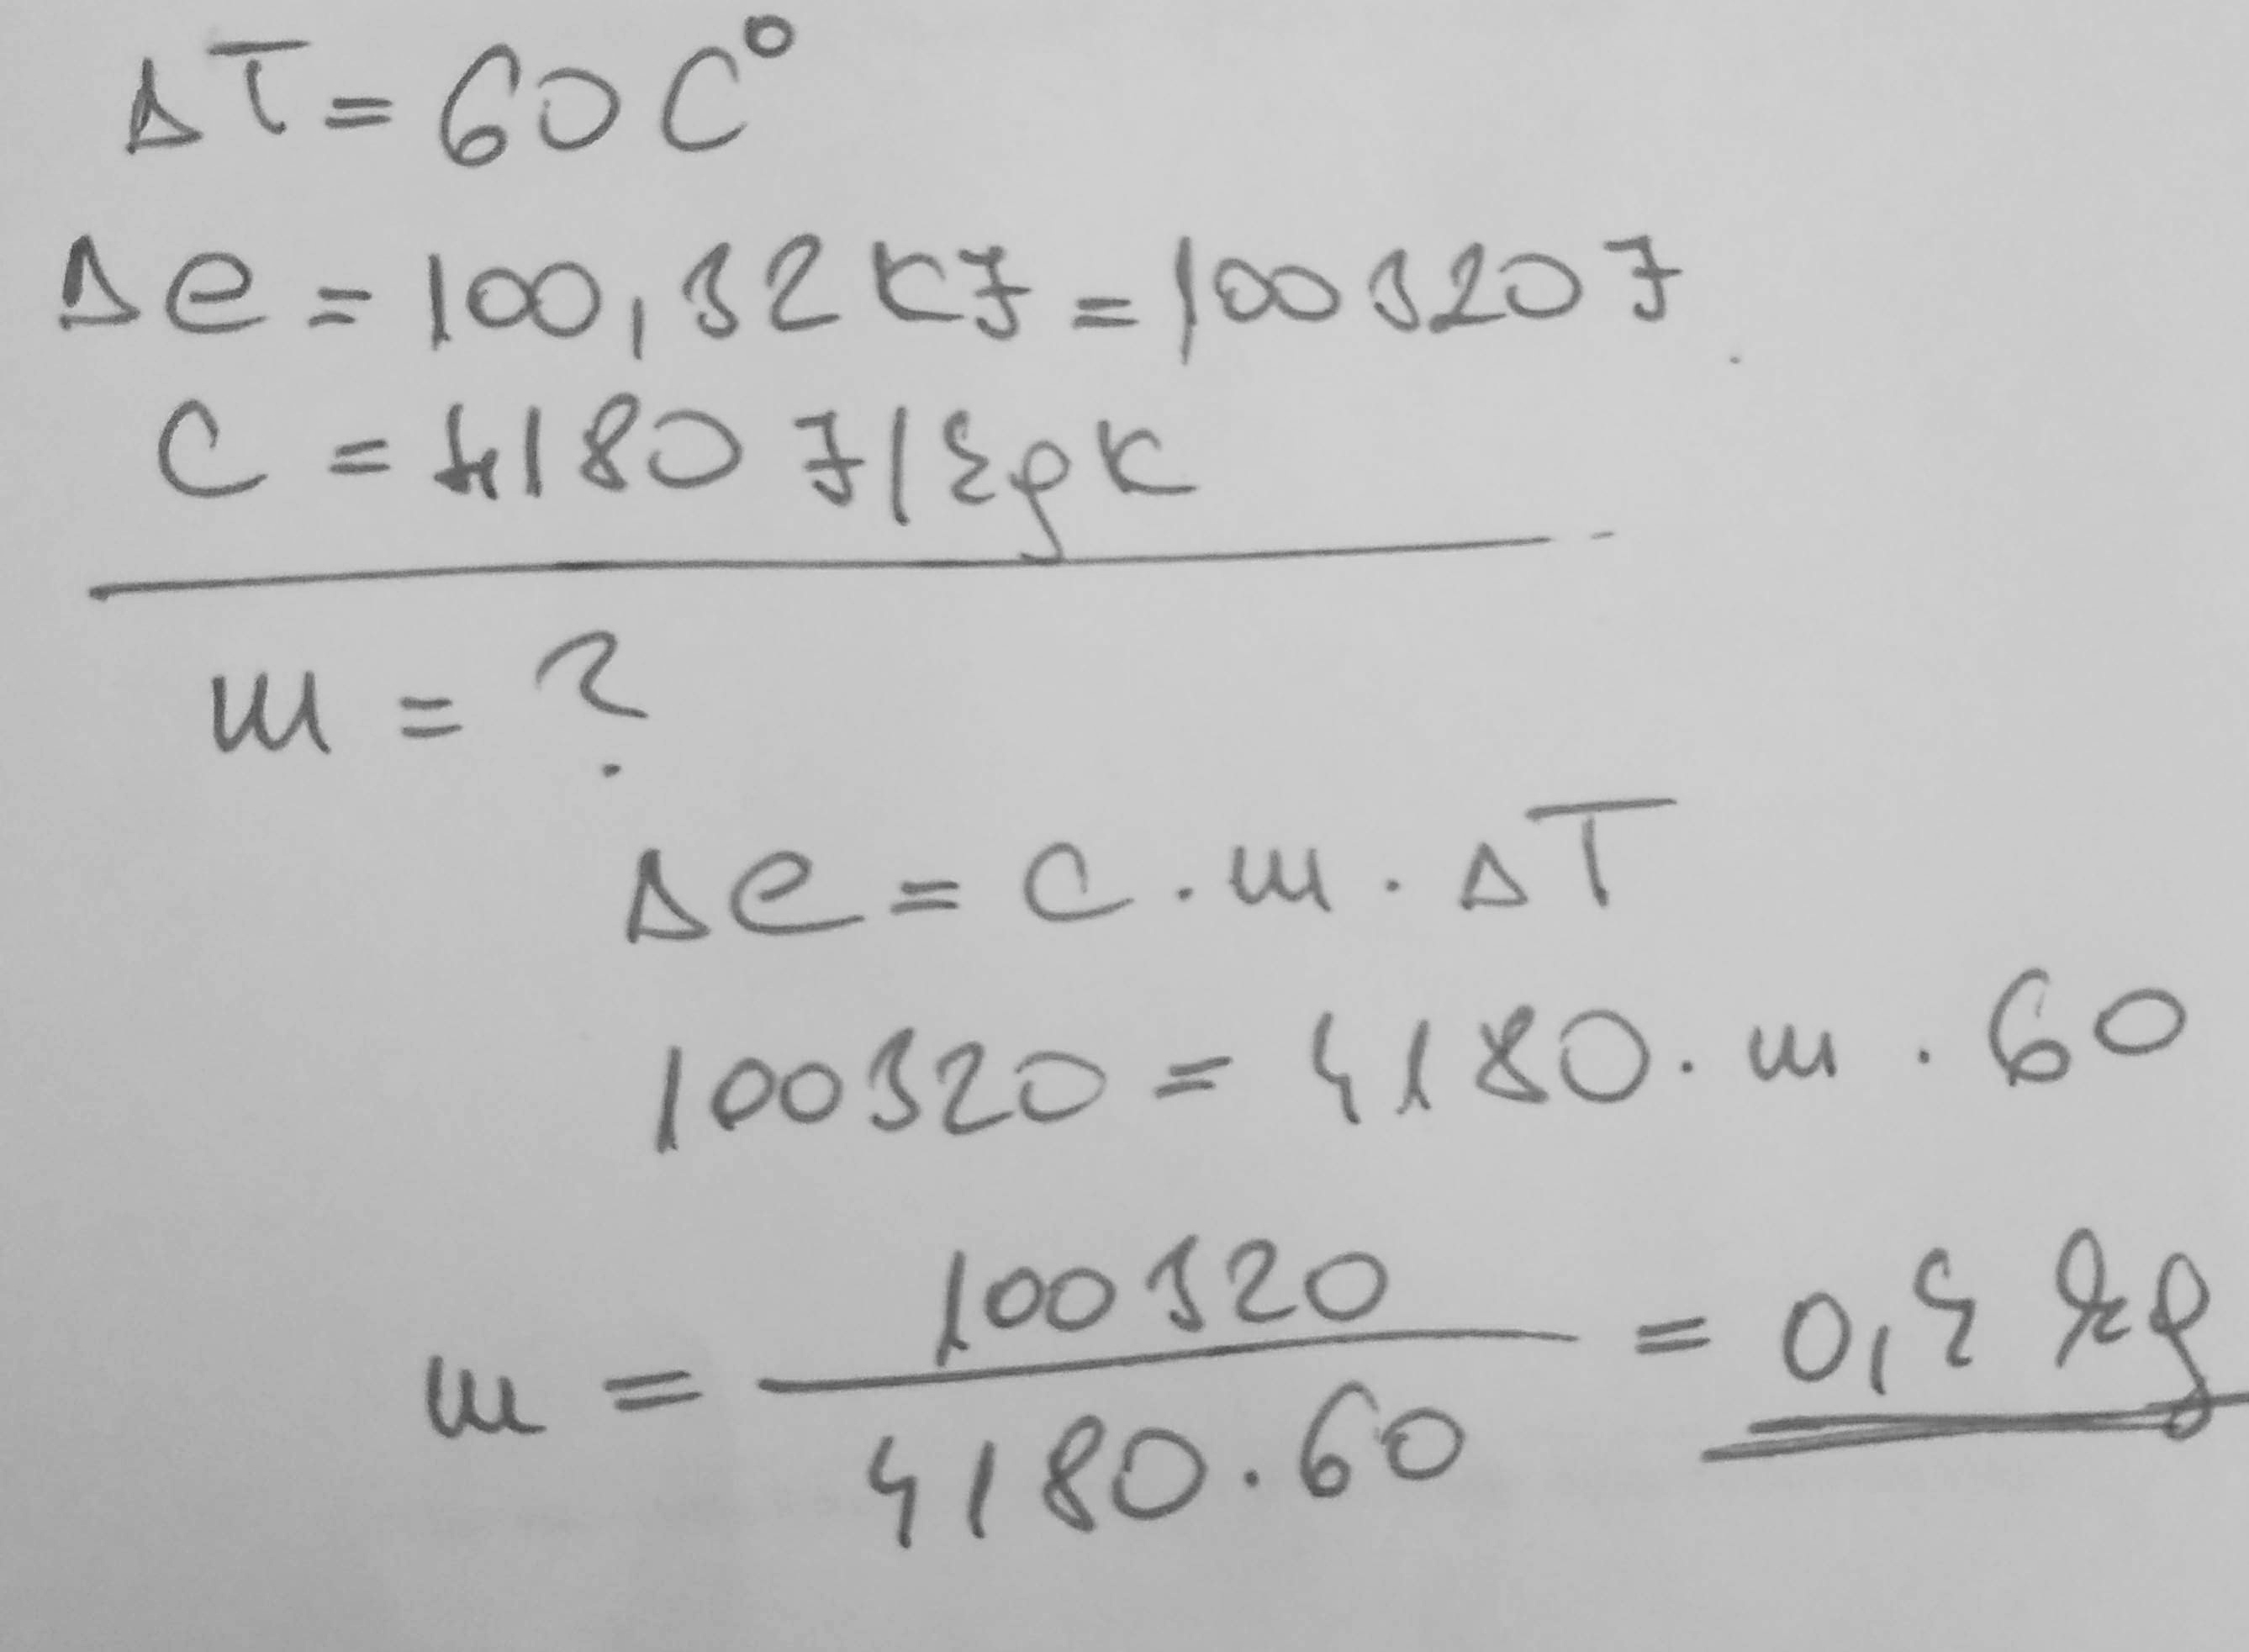 ΔT = 60 C°
Δe = 100,32 KJ = 100320 J
C = 4180 J/kgK
m = ?
Δe = c · m · ΔT
100320 = 4180 · m · 60
m = 100320 / 4180 · 60 = 0,4 kg